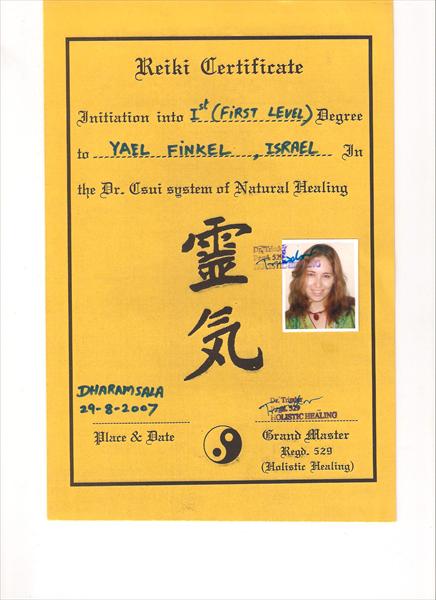 Reiki Certificate
Initiation into Ist (FIRST LEVEL) Degree
to YAEL FINKEL, ISRAEL In
the Dr. Csui system of Natural Healing
靈
気
Regd. 529
HOLISTIC HEALING
DHARAMSALA
29-8-2007
Place & Date
Regd. 529
HOLISTIC HEALING
Grand Master
Regd. 529
(Holistic Healing)